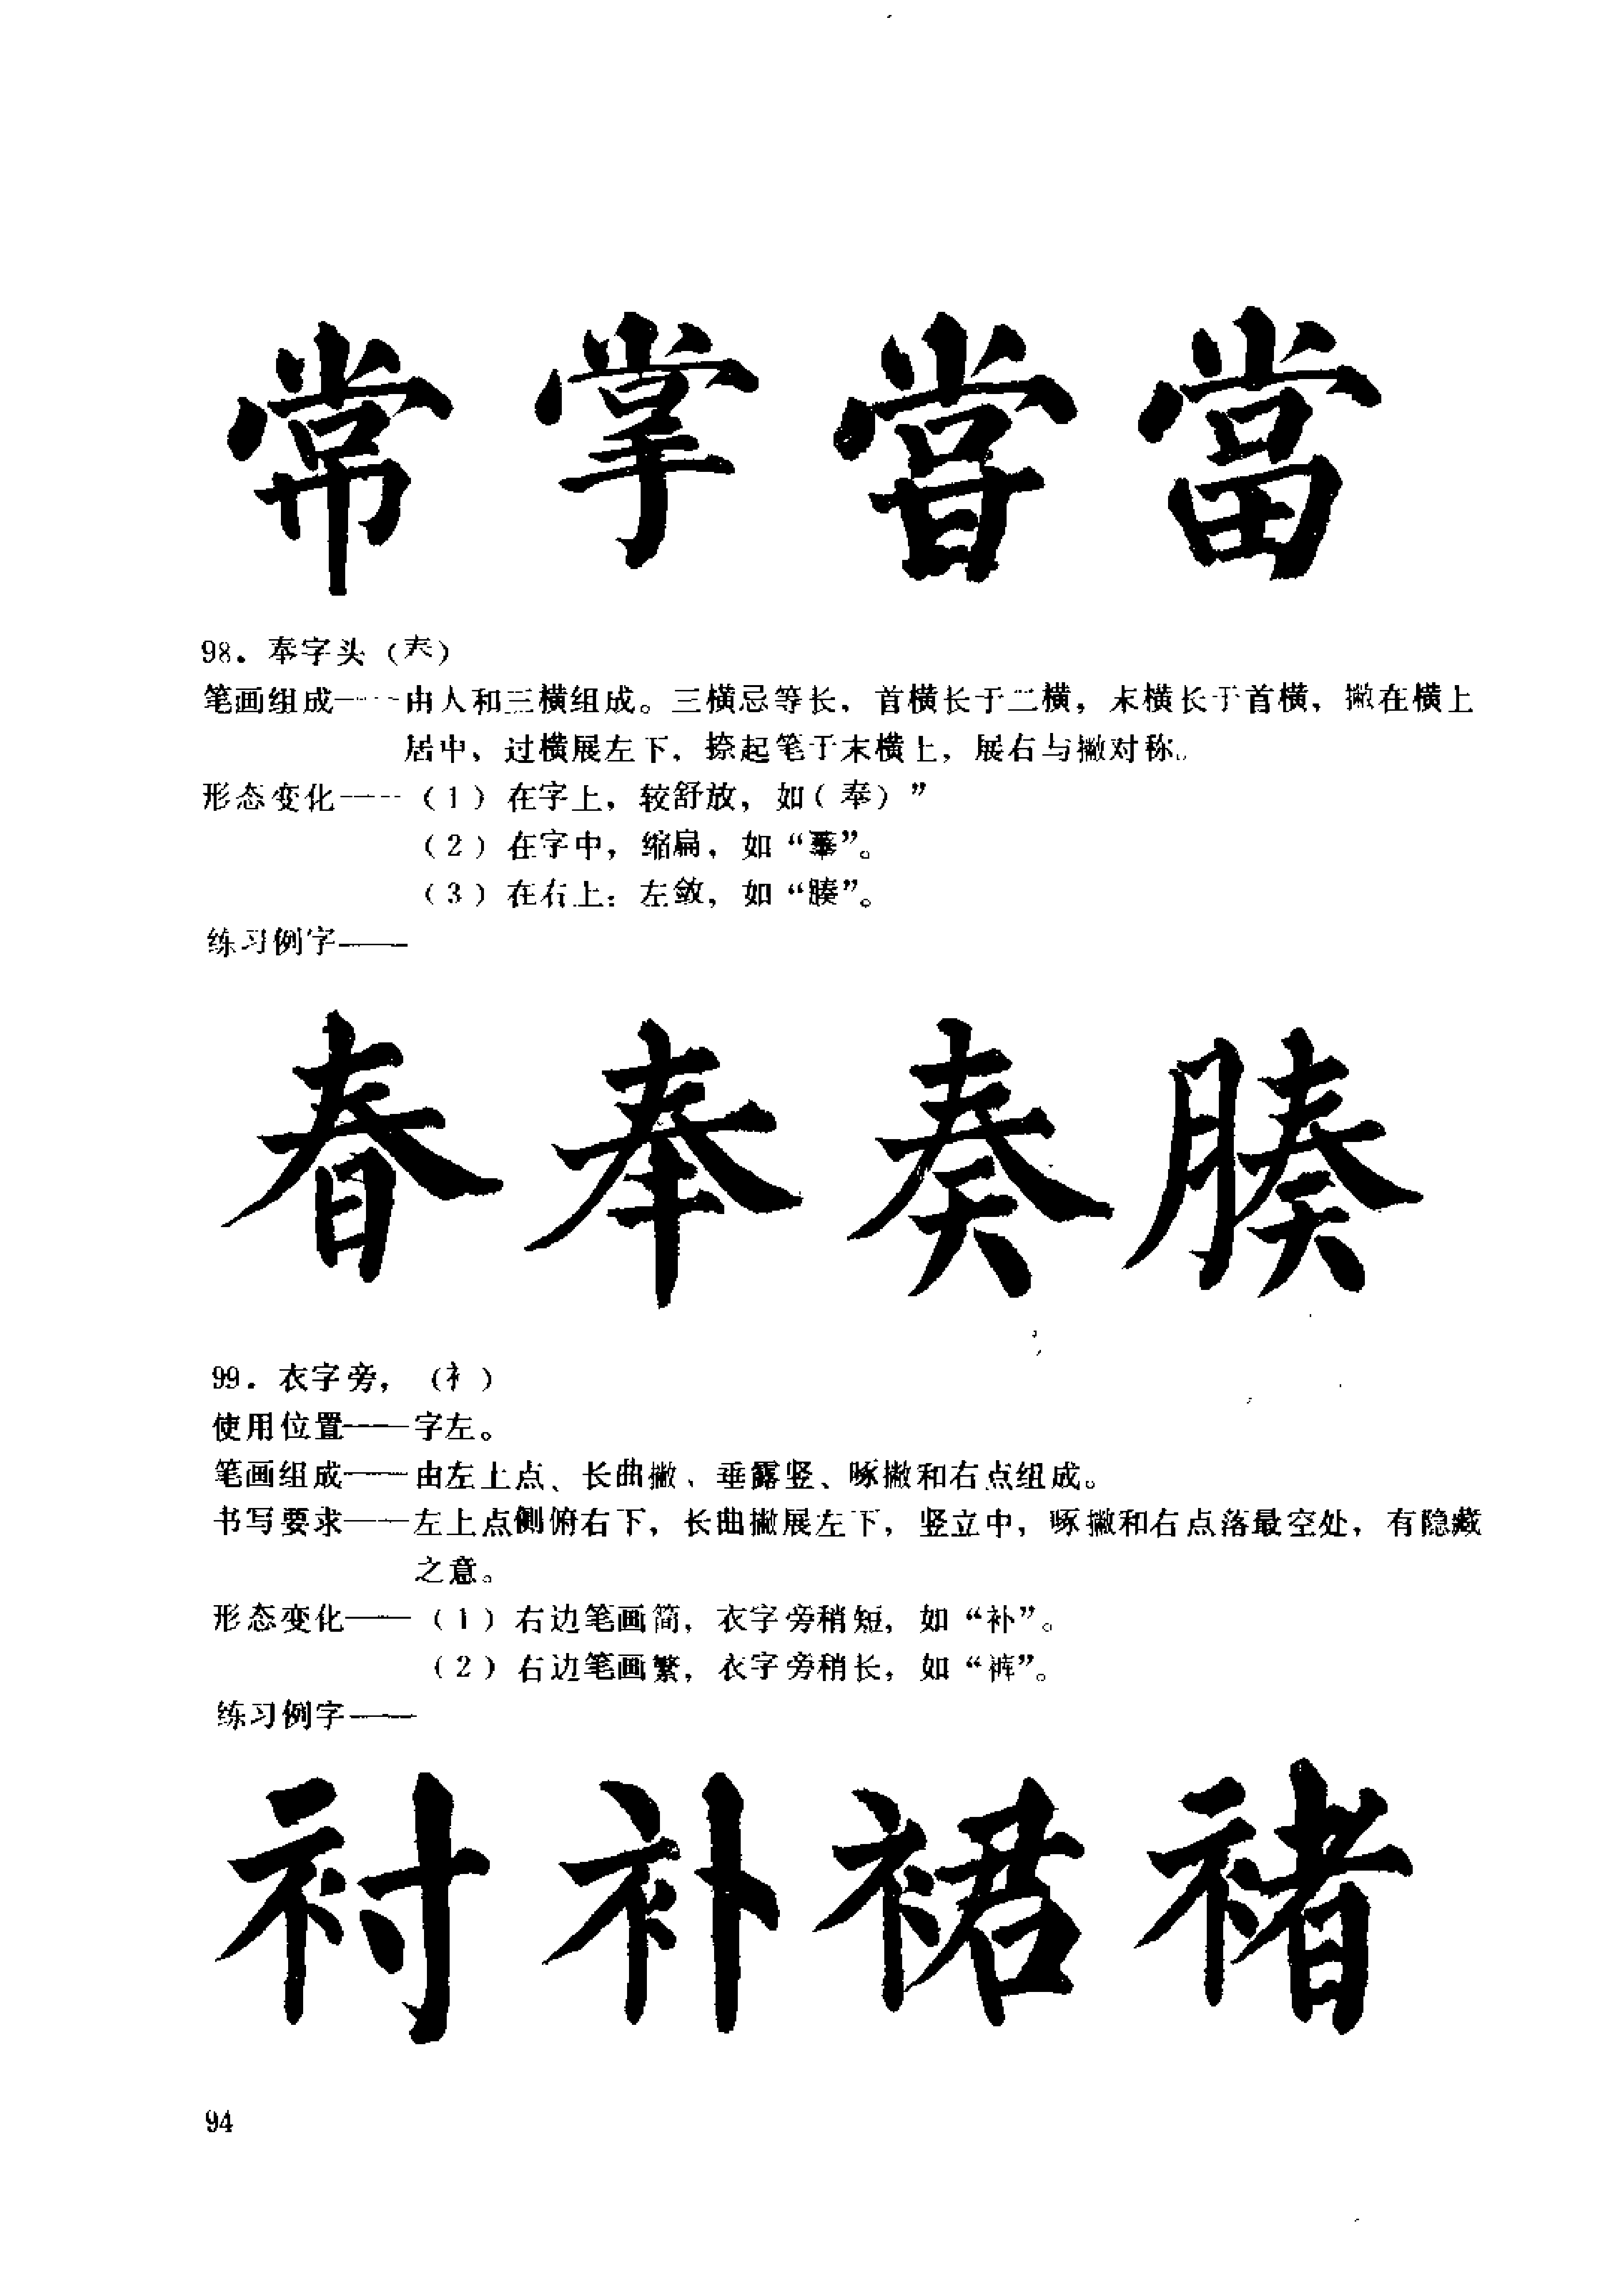 常 掌 甞 當
98. 奉字头（𡗗）
笔画组成——由人和三横组成。三横忌等长，首横长于二横，末横长于首横，撇在横上
居中，过横展左下，捺起笔于末横上，展右与撇对称。
形态变化——（1）在字上，较舒放，如（奉）”
（2）在字中，缩扁，如“蓁”。
（3）在右上：左敛，如“腠”。
练习例字——
春 奉 奏 腠
99. 衣字旁，（衤）
使用位置——字左。
笔画组成——由左上点、长曲撇、垂露竖、啄撇和右点组成。
书写要求——左上点侧俯右下，长曲撇展左下，竖立中，啄撇和右点落最空处，有隐藏
之意。
形态变化——（1）右边笔画简，衣字旁稍短，如“补”。
（2）右边笔画繁，衣字旁稍长，如“裤”。
练习例字——
衬 补 裙 褚
94